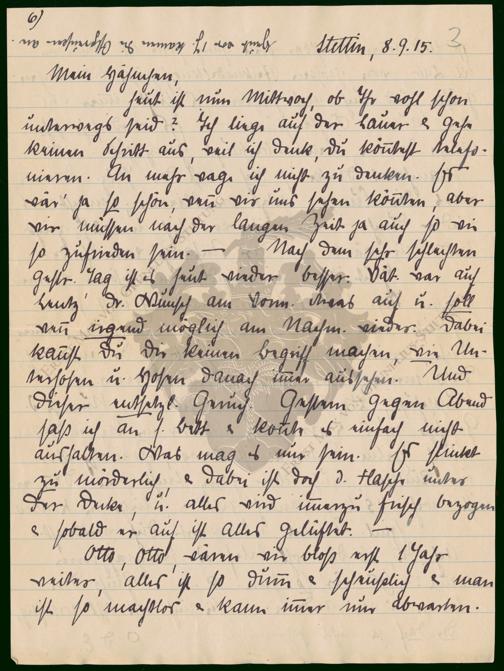 6)
3
Stettin, 8.9.15.
Mein Hähnchen,
heut ist nun Mittwoch, ob Ihr wohl schon
unterwegs seid? Ich liege auf der Lauer & gehe
keinen Schritt aus, weil ich denk, du kön̄test telefo-
nieren. An mehr wage ich nicht zu denken. Es
wär' ja so schön, wen̄ wir uns sehen kön̄ten, aber
wir müssen nach der langen Zeit ja auch so wie
so zufrieden sein. — Nach dem sehr schlechten
gestr. Tag ist es heut wieder besser. Vät. war auf
u. soll
wen̄ irgend möglich am Nachm. wieder. Dabei
kan̄st Du Dir keinen Begriff machen, wie Un-
terhosen u. Hosen danach im̄er aussehen. Und
dieser entsetzl. Geruch. Gestern gegen Abend
saß ich an s. Bett & kon̄te es einfach nicht
aushalten. Was mag es nur sein. Es stinkt
zu mörderlich, & dabei ist doch d. Flasche unter
der Decke, u. alles wird im̄erzu frisch bezogen
& sobald er auf ist alles gelüftet. —
Otto, Otto, wären wir bloß erst 1 Jahr
weiter, alles ist so dum̄ & scheußlich & man
ist so machtlos & kann im̄er nur abwarten.